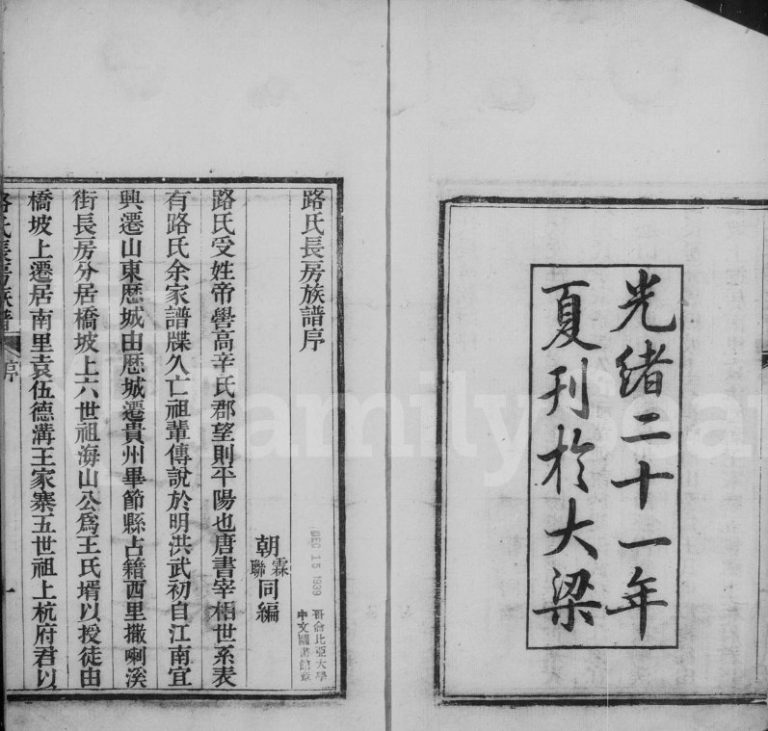 光緒二十一年
夏刊於大梁
路氏長房族譜序
朝霖
聯
同編
路氏受姓帝嚳高辛氏郡望則平陽也唐書宰相世系表
有路氏余家譜牒久亡祖輩傳說於明洪武初自江南宜
興遷山東歷城由歷城遷貴州畢節縣占籍西里撒喇溪
街長房分居橋坡上六世祖海山公爲王氏壻以授徒由
橋坡上遷居南里袁伍德溝王家寨五世祖上杭府君以
路氏長房族譜
序
一
DEC 15 1939
哥倫比亞大學
中文圖書館藏
Family Sear